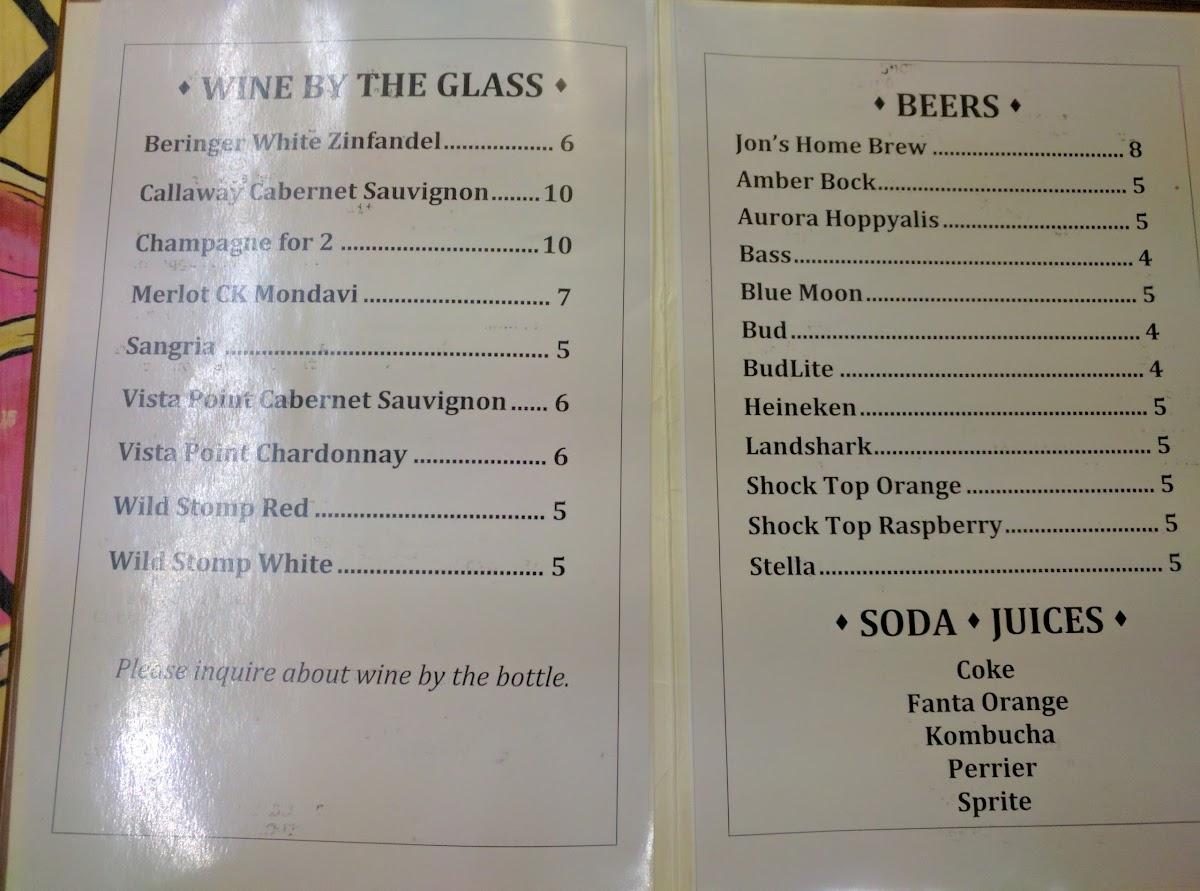 ♦ WINE BY THE GLASS ♦
Beringer White Zinfandel.................... 6
Callaway Cabernet Sauvignon........ 10
Champagne for 2 .................................... 10
Merlot CK Mondavi .................................. 7
Sangria .......................................................... 5
Vista Point Cabernet Sauvignon...... 6
Vista Point Chardonnay ........................ 6
Wild Stomp Red .......................................... 5
Wild Stomp White ..................................... 5
Please inquire about wine by the bottle.
♦ BEERS ♦
Jon's Home Brew ..................................... 8
Amber Bock................................................ 5
Aurora Hoppyalis .................................... 5
Bass................................................................ 4
Blue Moon................................................... 5
Bud .................................................................. 4
BudLite ......................................................... 4
Heineken ...................................................... 5
Landshark.................................................... 5
Shock Top Orange .................................... 5
Shock Top Raspberry.............................. 5
Stella................................................................ 5
♦ SODA ♦ JUICES ♦
Coke
Fanta Orange
Kombucha
Perrier
Sprite